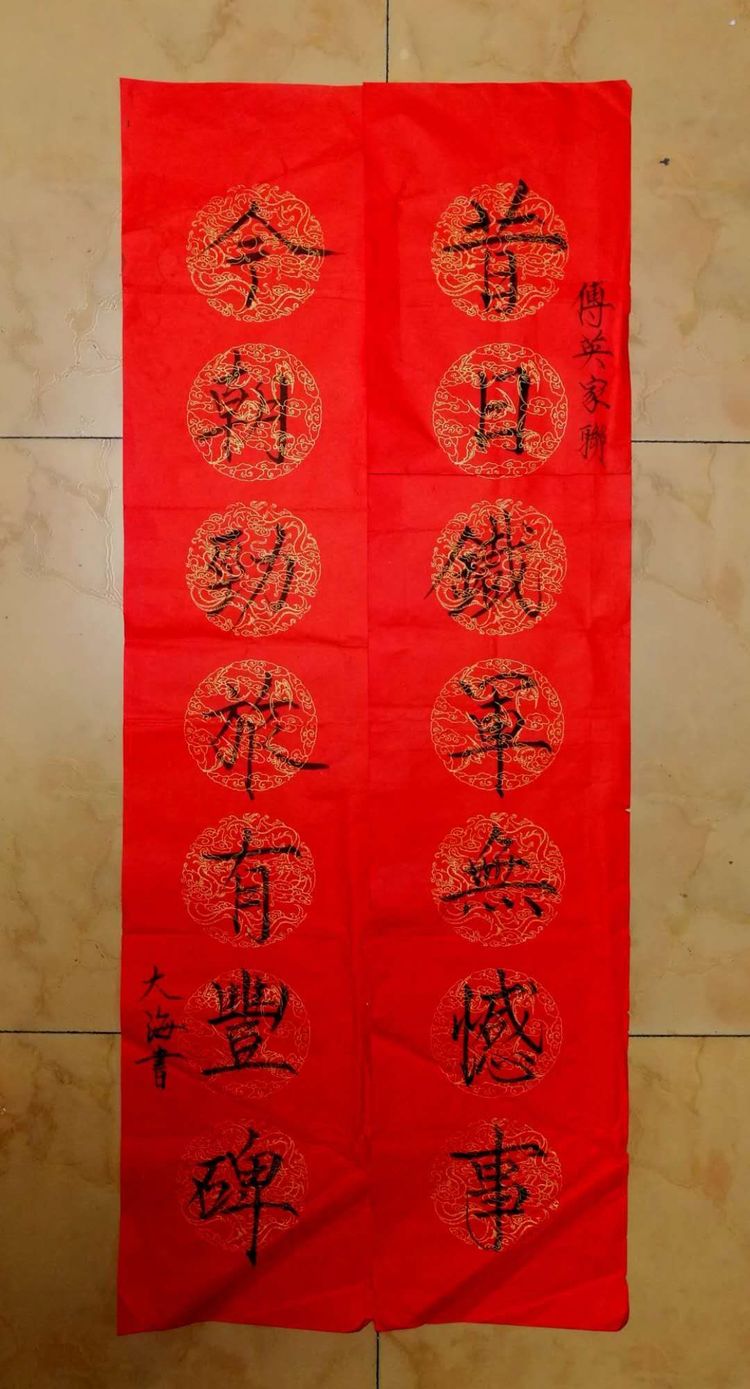 傅英家聯
昔日鐵軍無憾事
今朝勁旅有豐碑
大海書